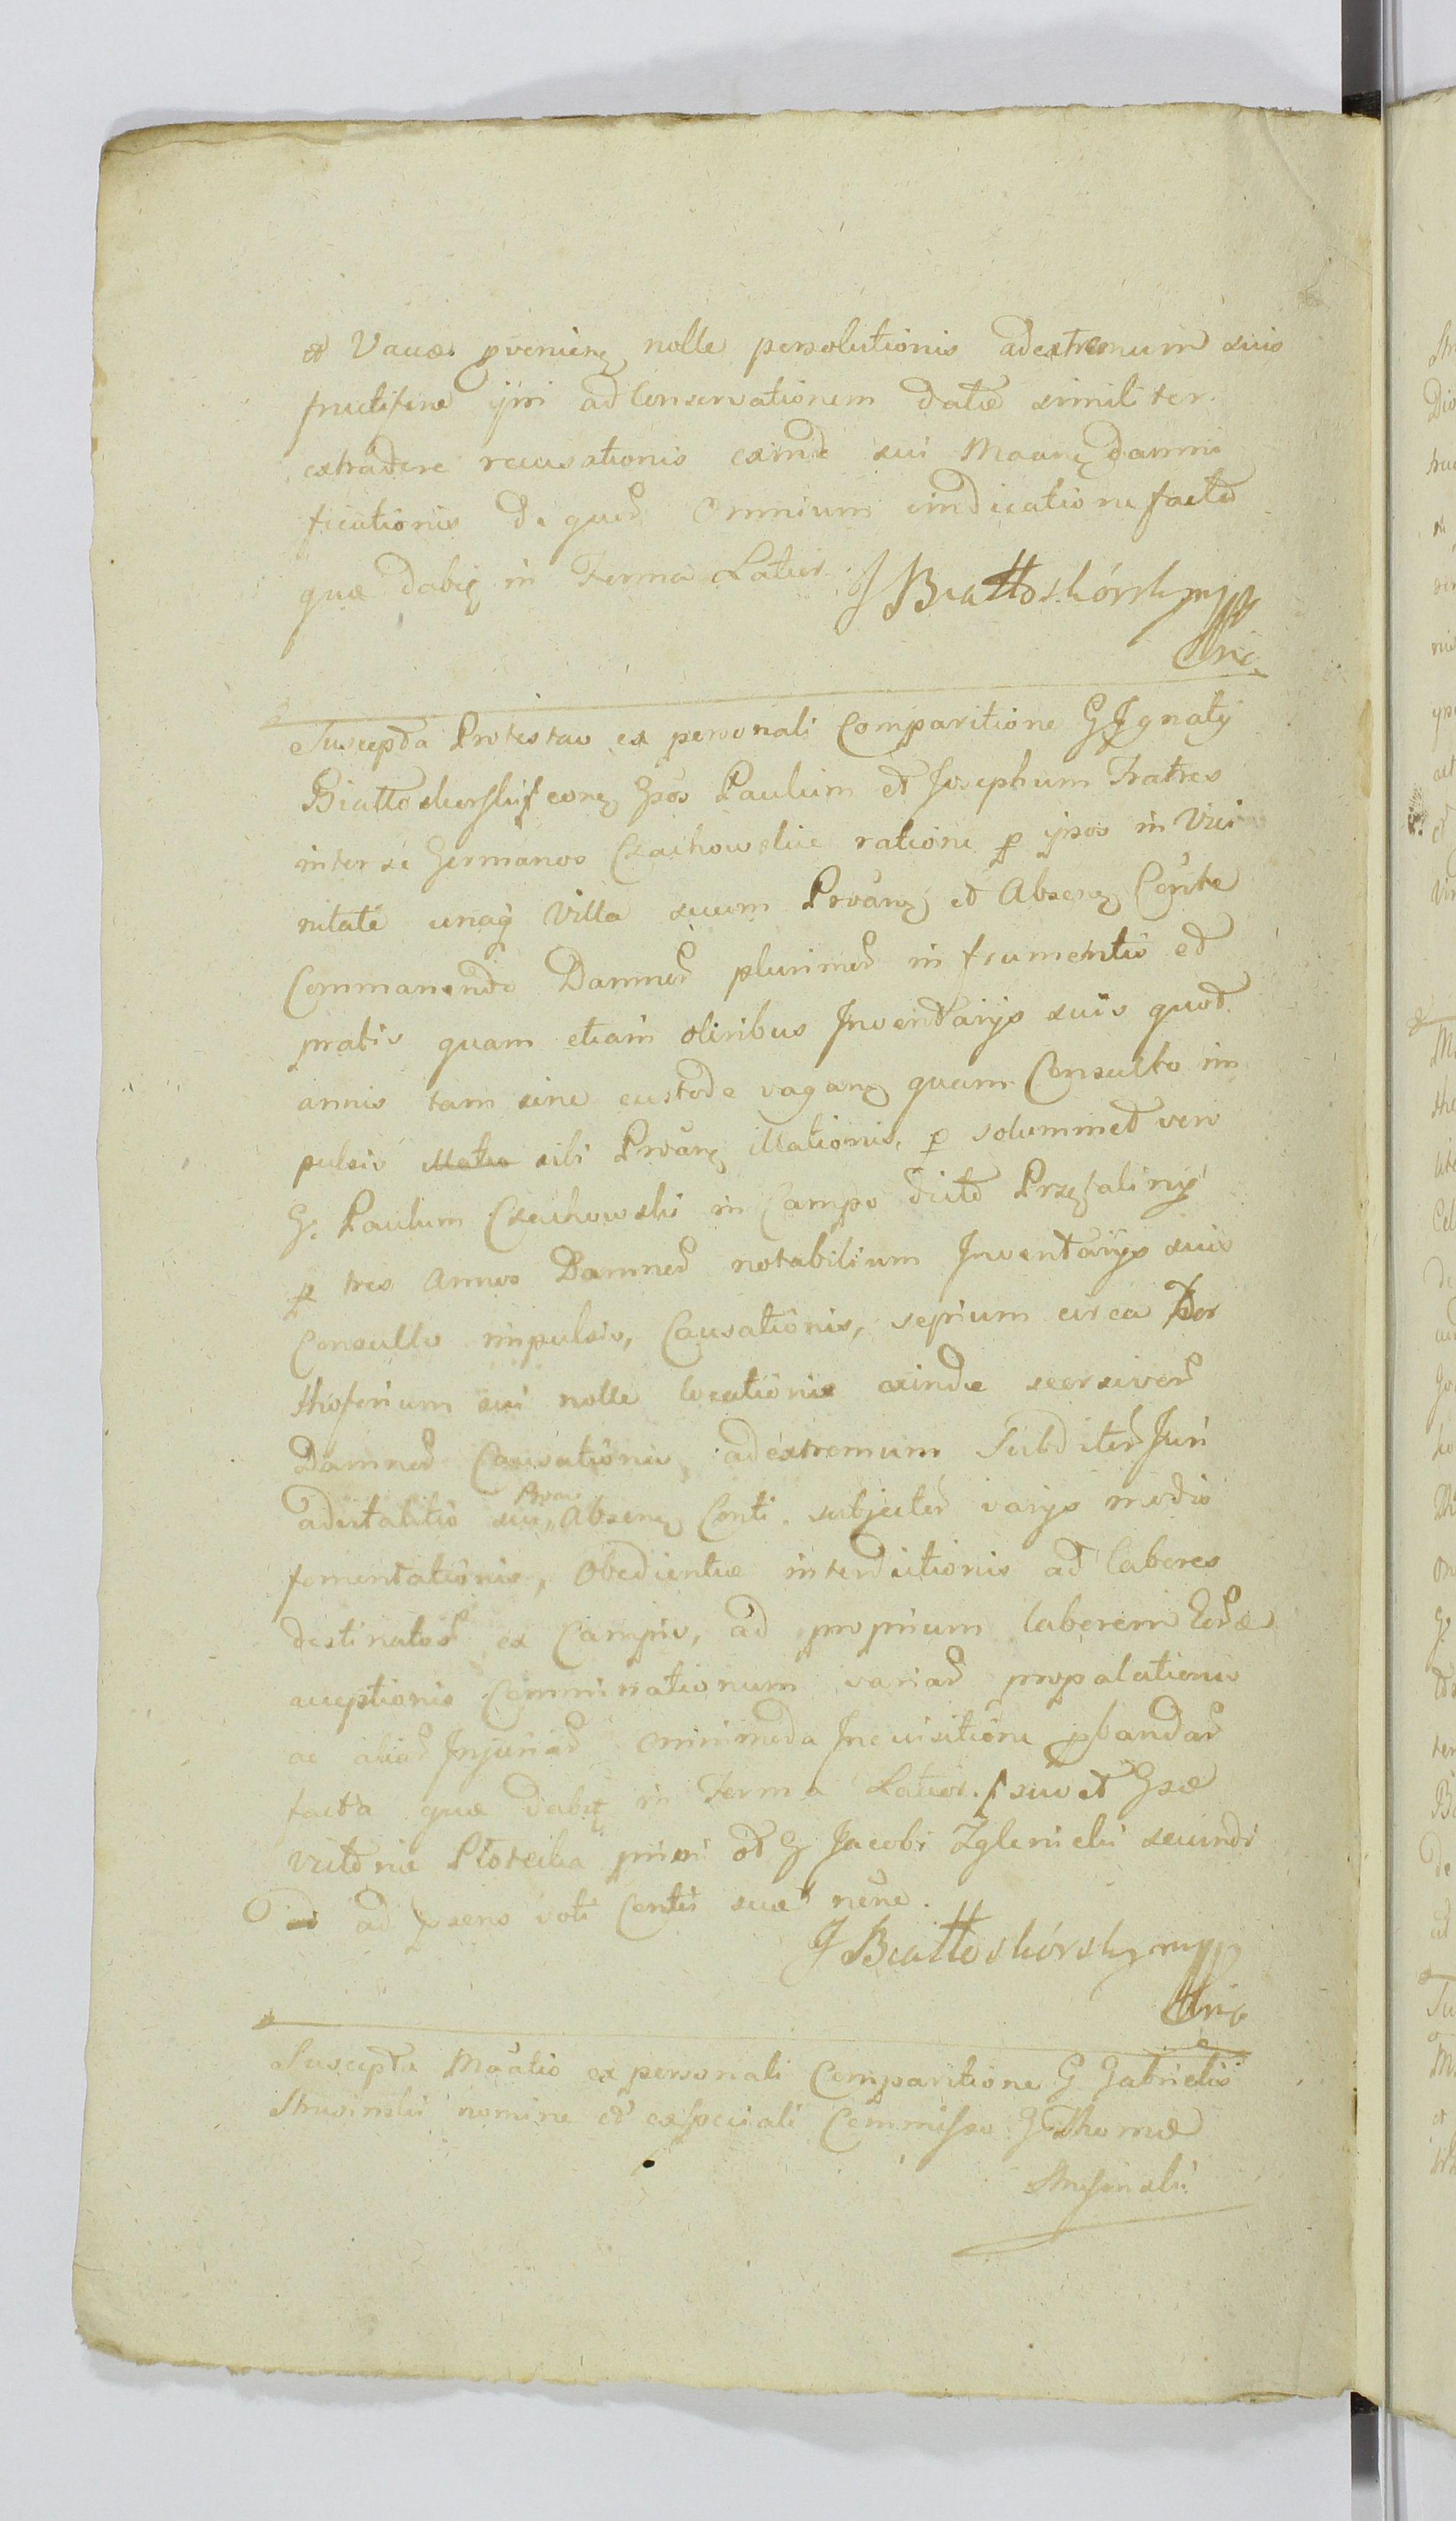 et Vacæ pvenieñ nolle persolutionis ad extremum suis
fructifine ijrri ad Conservationem datæ similiter
extradere recusationis exinde sui Maañ damni
ficationis de quor̃ omnium vindicatione facta
quæ dabit in Forma Latior.
J Białłoskórski mpp
Suscepta Protestao ex personali Comparitione G Ignatij
Białłoskorski cont̃ Gsos Paulum et Josephum Fratres
inter se Germanos Czachowskie ratione p ipsos in Vici
nitate unaq̃ Villa secum Proañ et Abseñ Conte
Commanendo Damnor̃ plurimor̃ in frumentis et
pratis quam etiam oliribus Inventarijs suis quot
annis tam sine custode vagañ quam Consulto im
pulsis sibi Proañ illationis, p solummet vero
G. Paulum Czachowski in Campo dicto Przętaliny
p tres Annos Damnor̃ notabilium Inventarijs suis
Consulto impulsis, Causationis, sepium circa
sui nolle locationis exinde
Damnor̃ Causationis, ad extremum Subditor̃ Juri
advitalitio sui Proañ Abseñ Conti. subjector̃ varijs modis
fomentationis, Obedientiæ interdictionis ad labores
destinator̃ ex Campis, ad proprium laborem
acceptionis Comminationum variar̃ propalationis
ac aliar̃ Injuriar̃ omnimoda Inquisitione pbandar̃
facta quæ dabit in Forma Latior. suo et Gsæ
Victoriæ primi et G Jacobi Zglenicki secundi
ad psens voti Contis suæ nõne.
J Białłoskórski mpp
Suscepta Maatio ex personali Comparitione G Gabrielis
Strusinski nomine et ex speciali Commisso G Thomæ
Strusinski